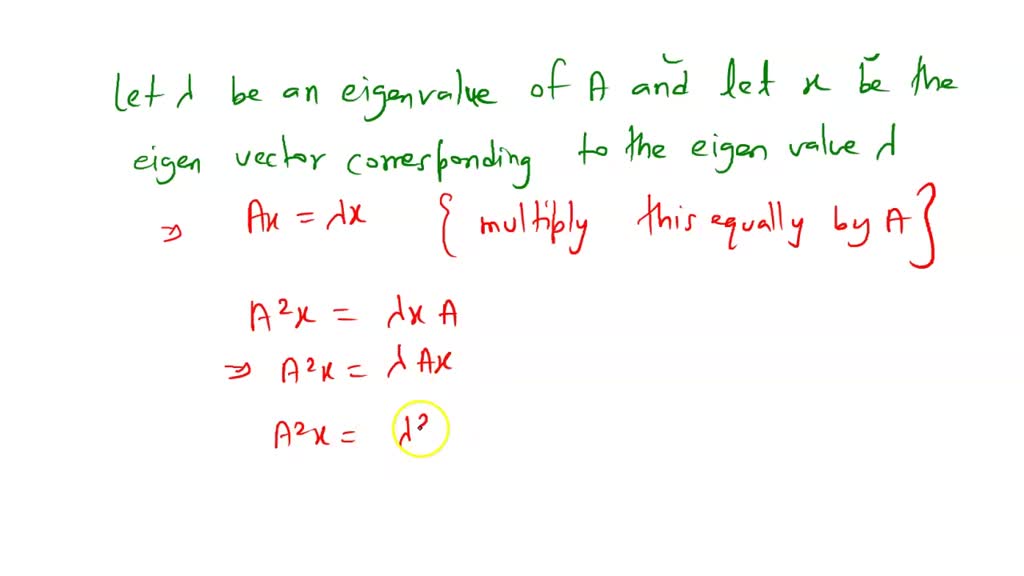 Let λ be an eigenvalue of A and let x be the
eigen vector corresponding to the eigen value λ
⇒ Ax = λx { multiply this equally by A }
A²x = λx A
⇒ A²x = λ Ax
A²x = λ²